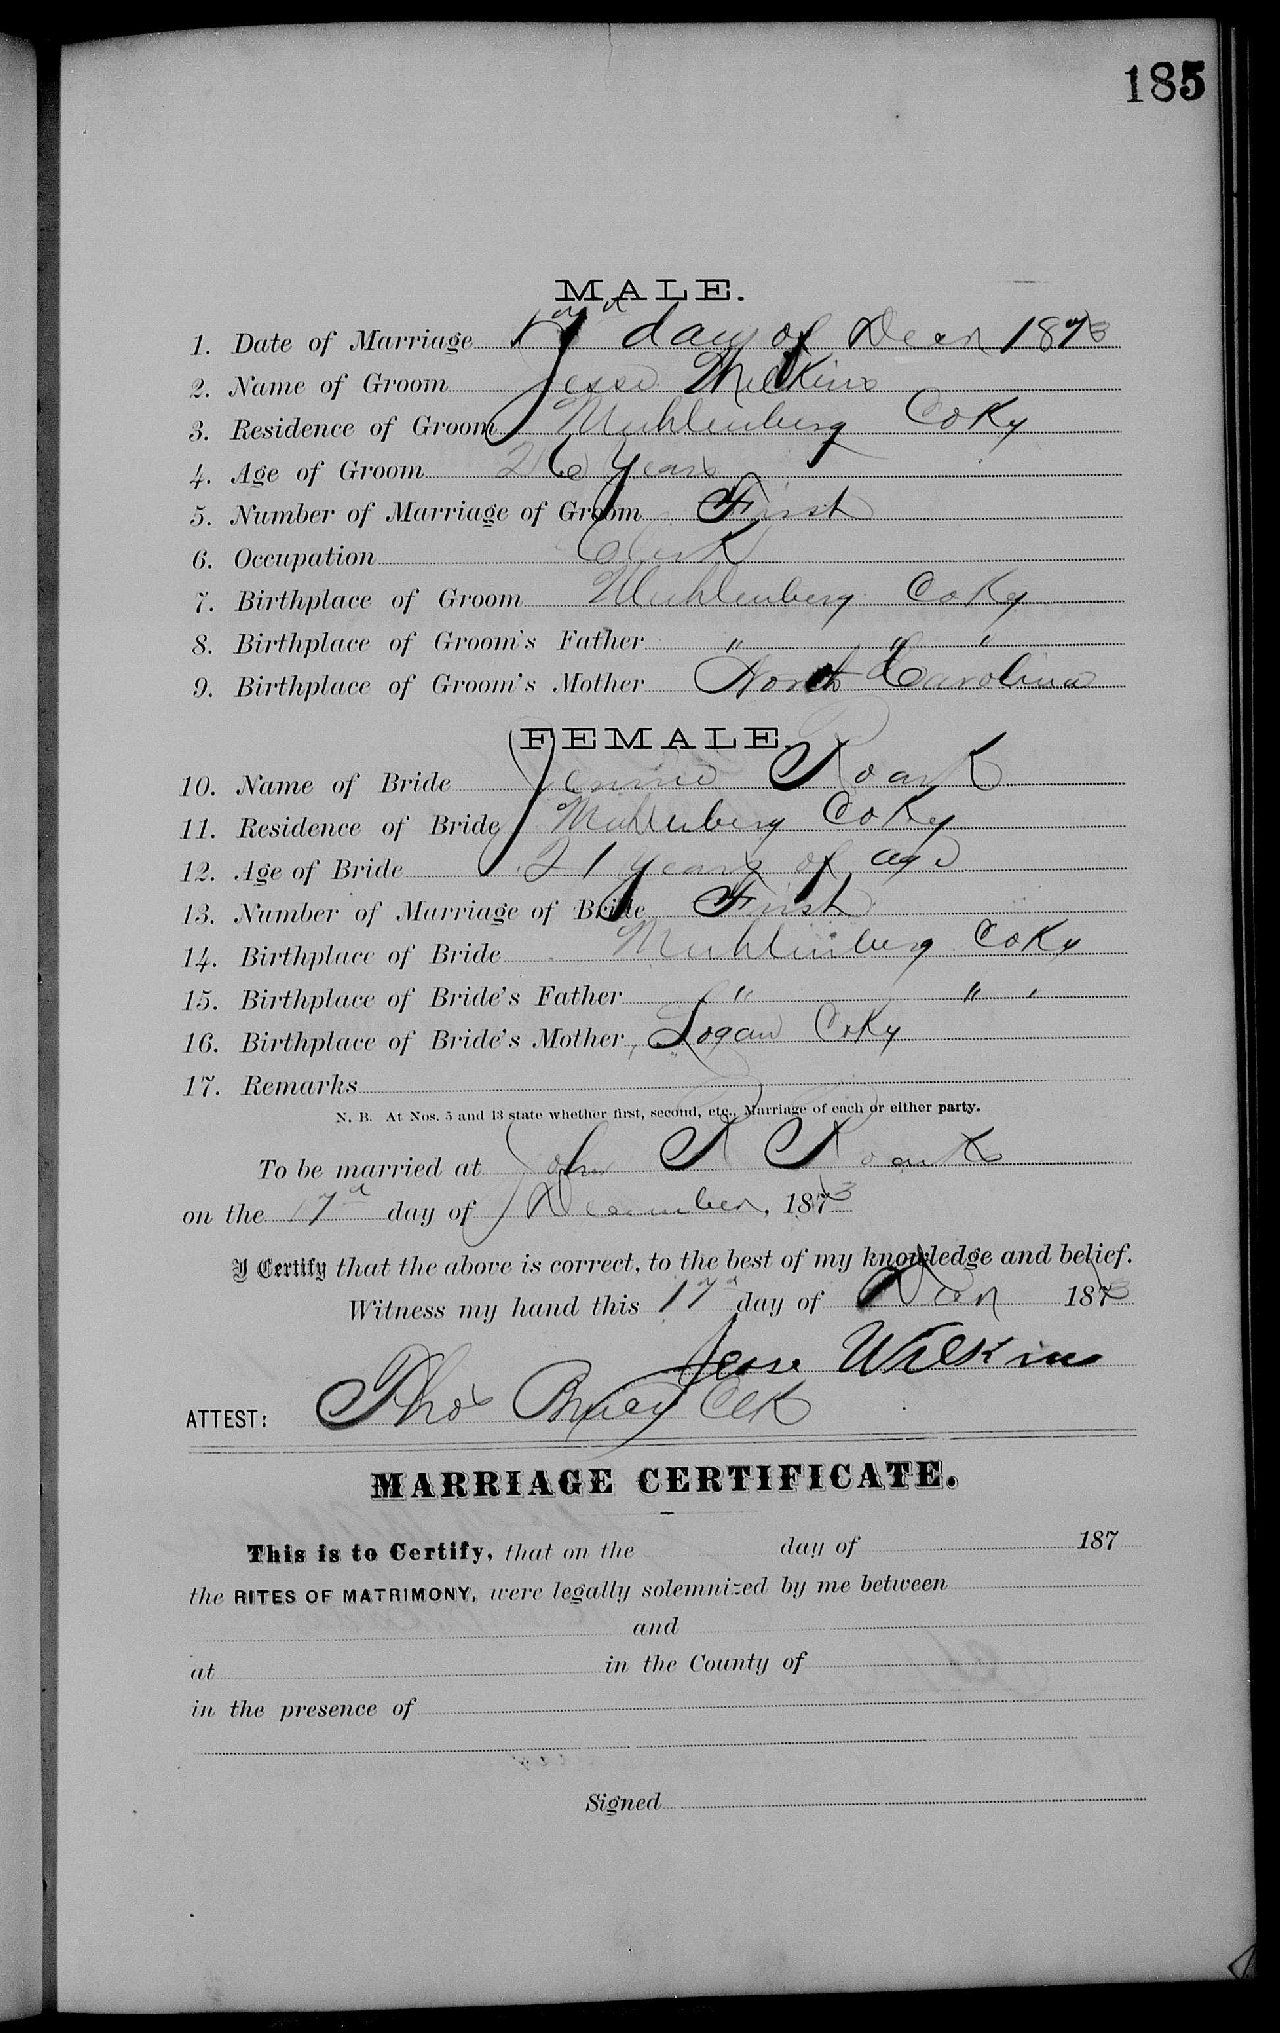 185
MALE.
1. Date of Marriage 17 day of Decr 1873
2. Name of Groom Jesse Wilkins
3. Residence of Groom Muhlenberg Co Ky
4. Age of Groom 26 years
5. Number of Marriage of Groom First
6. Occupation Clerk
7. Birthplace of Groom Muhlenberg Co Ky
8. Birthplace of Groom's Father " " "
9. Birthplace of Groom's Mother North Carolina
FEMALE.
10. Name of Bride Jennie Roark
11. Residence of Bride Muhlenberg Co Ky
12. Age of Bride 21 years of age
13. Number of Marriage of Bride First
14. Birthplace of Bride Muhlenberg Co Ky
15. Birthplace of Bride's Father " " "
16. Birthplace of Bride's Mother Logan Co Ky
17. Remarks
N. B. At Nos. 5 and 13 state whether first, second, etc., Marriage of each or either party.
To be married at John R Roark
on the 17th day of December, 1873
I Certify that the above is correct, to the best of my knowledge and belief.
Witness my hand this 17th day of Decr 1873
Jesse Wilkins
ATTEST: Thos Bruce Clk
MARRIAGE CERTIFICATE.
This is to Certify, that on the day of 187
the RITES OF MATRIMONY, were legally solemnized by me between
and
at in the County of
in the presence of
Signed